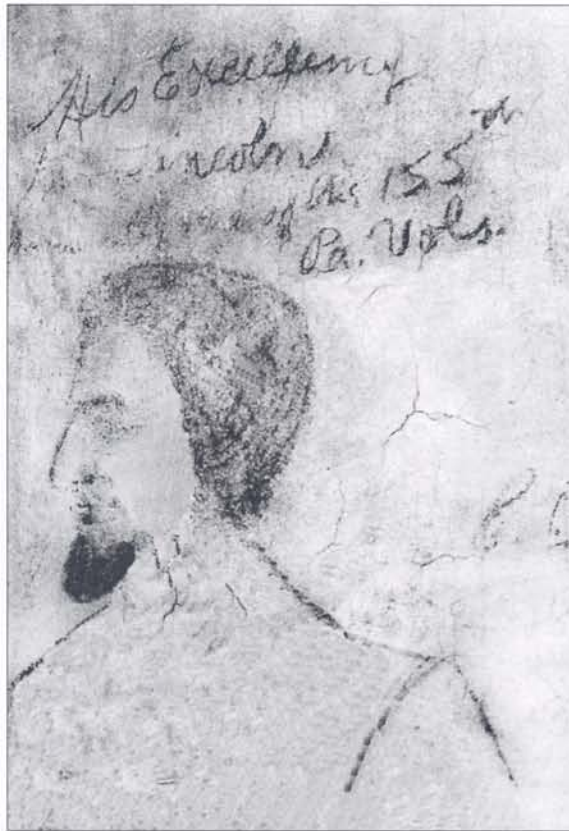 His Excellency
Lincoln
of the 155th
Pa. Vols.